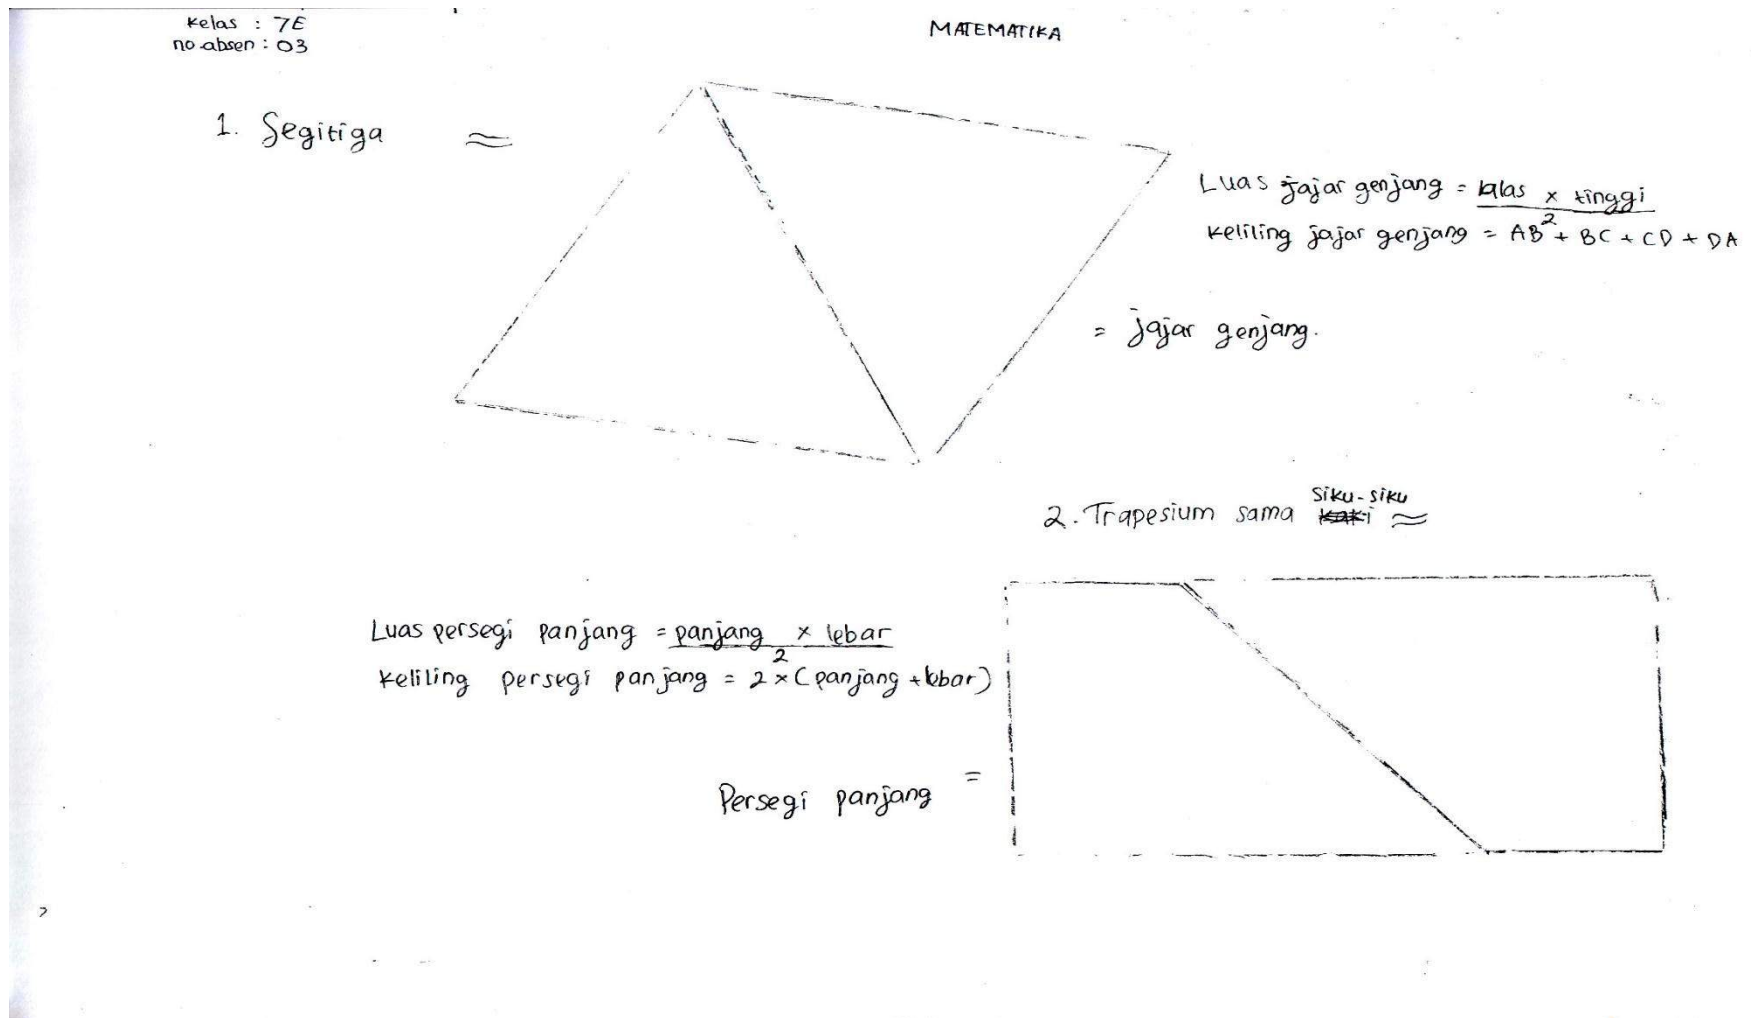 Kelas : 7E
no.absen : 03
MATEMATIKA
1. Segitiga ≈
Luas jajar genjang = alas x tinggi
2
Keliling jajar genjang = AB + BC + CD + DA
= jajar genjang.
2. Trapesium sama kaki siku-siku ≈
Luas persegi panjang = panjang x lebar
2
Keliling persegi panjang = 2 x (panjang + lebar)
Persegi panjang =